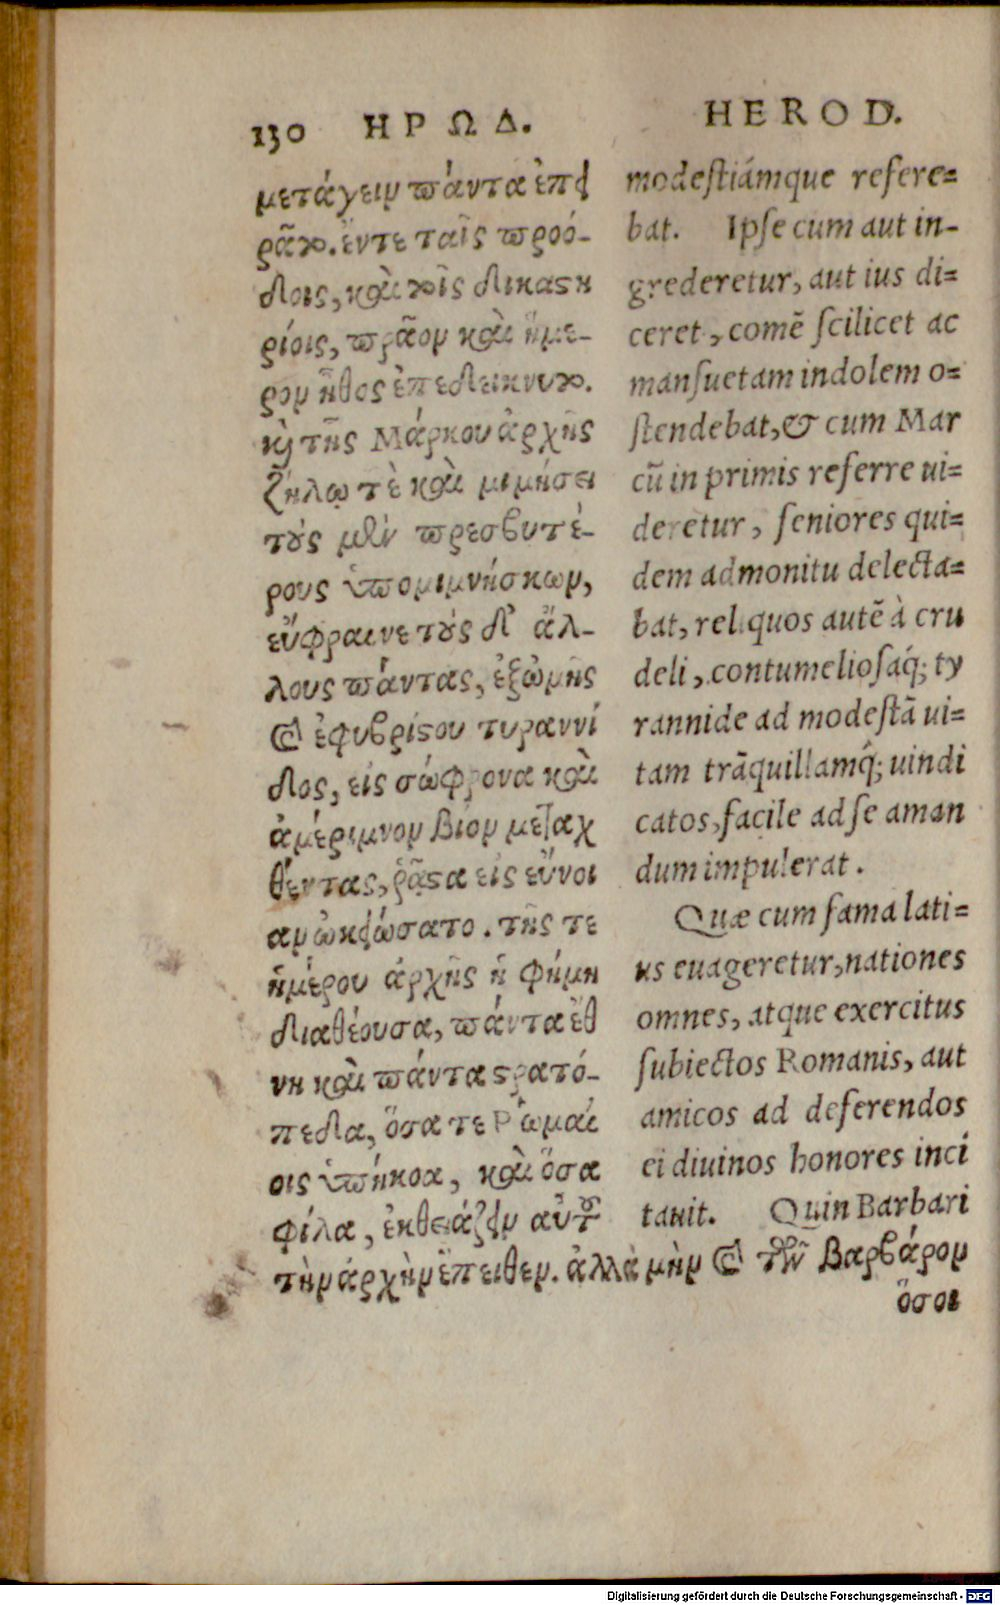 130 ΗΡΩΔ.
μετάγειν πάντα ἐπει
ρᾶτο. ἔν τε ταῖς προό-
δοις, καὶ τοῖς δικαστη
ρίοις, πρᾶον καὶ ἥμε-
ρον ἦθος ἐπεδείκνυτο.
κὶ τῆς Μάρκου ἀρχῆς
ζήλῳ τὲ καὶ μιμήσει
τοὺς μὲν πρεσβυτέ-
ρους ὑπομιμνήσκων,
εὔφραινε τοὺς δ' ἄλ-
λους πάντας, ἐξ ὠμῆς
καὶ ἐφυβρίστου τυραννί
δος, εἰς σώφρονα καὶ
ἀμέριμνον βίον μεταχ
θέντας, ῥᾷστα εἰς εὔνοι
αν ᾠκειώσατο. τῆς τε
ἡμέρου ἀρχῆς ἡ φήμη
διαθέουσα, πάντα ἔθ
νη καὶ πάντα στρατό-
πεδα, ὅσα τε Ῥωμαί
οις ὑπήκοα, καὶ ὅσα
φίλα, ἐκθειάζειν αὐτοῦ
τὴν ἀρχὴν ἔπειθεν. ἀλλὰ μὴν καὶ τῶν βαρβάρον
ὅσοι
HEROD.
modestiámque refere=
bat. Ipse cum aut in-
grederetur, aut ius di=
ceret, comē scilicet ac
mansuetam indolem o=
stendebat, & cum Mar
cū in primis referre ui=
deretur, seniores qui=
dem admonitu delecta=
bat, reliquos autē à cru
deli, contumeliosaq́; ty
rannide ad modestā ui=
tam trāquillamq́; uindi
catos, facile ad se aman
dum impulerat.
Quæ cum fama lati=
us euageretur, nationes
omnes, atque exercitus
subiectos Romanis, aut
amicos ad deferendos
ei diuinos honores inci
tauit. Quin Barbari
Digitalisierung gefördert durch die Deutsche Forschungsgemeinschaft - DFG